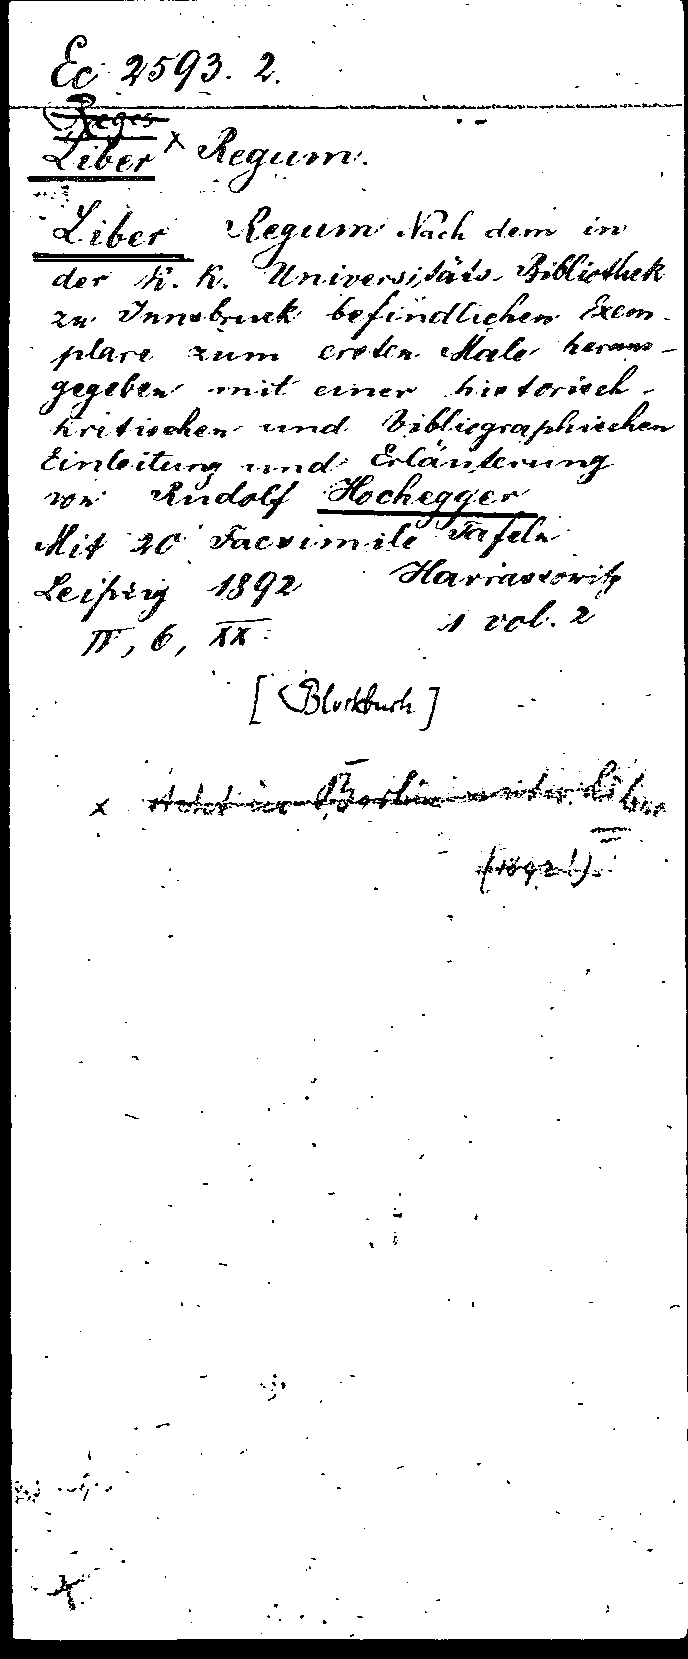 Ec 2593. 2.
Reges
Liber x Regum.
Liber Regum Nach dem in
der K. K. Universitäts-Bibliothek
zu Innsbruck befindlichen Exem-
plare zum ersten Male heraus-
gegeben mit einer historisch-
kritischen und bibliographischen
Einleitung und Erläuterung
von Rudolf Hochegger
Mit 20 Facsimile Tafeln
Leipzig 1892 Harrassowitz
IV, 6, XX. 1 vol. 2
[Blockbuch]
x steht in Berlin unter Liber